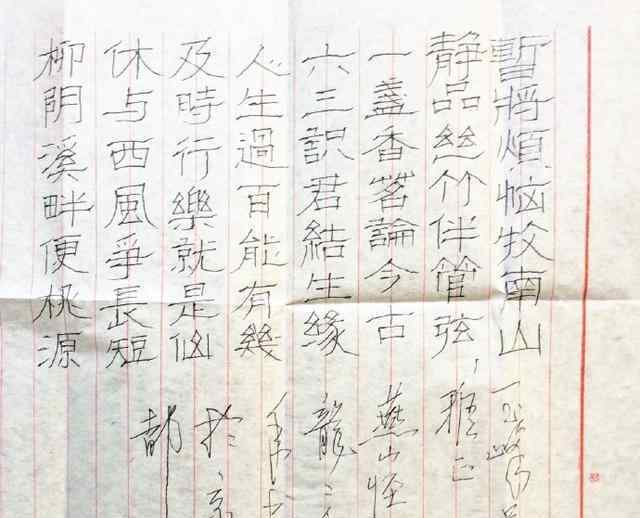 暫將煩恼牧南山
静品絲竹伴管弦，雅正
一盞香茗論今古 燕山怪
六三訳君結生緣 龍
人生過百能有幾
及時行樂就是仙 於京
休与西風爭長短 都
柳阴溪畔便桃源